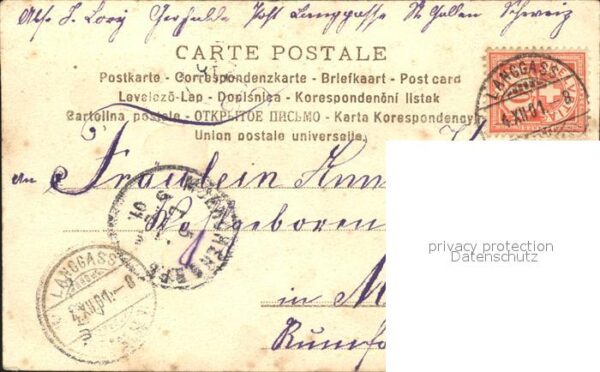 Abs. J. Lorz Post Langgasse St. Gallen Schweiz
CARTE POSTALE
Postkarte - Correspondenzkarte - Briefkaart - Post card
Levelező-Lap - Dopisnica - Korespondenční listek
Cartolina postale - ОТКРЫТОЕ ПИСЬМО - Karta Korespondency
Union postale universelle
LANGGASS
4.XII.01
an Fräulein
Wohlgeboren
in M
Rumfo
MÜNCHEN
LANGGASS
privacy protection
Datenschutz